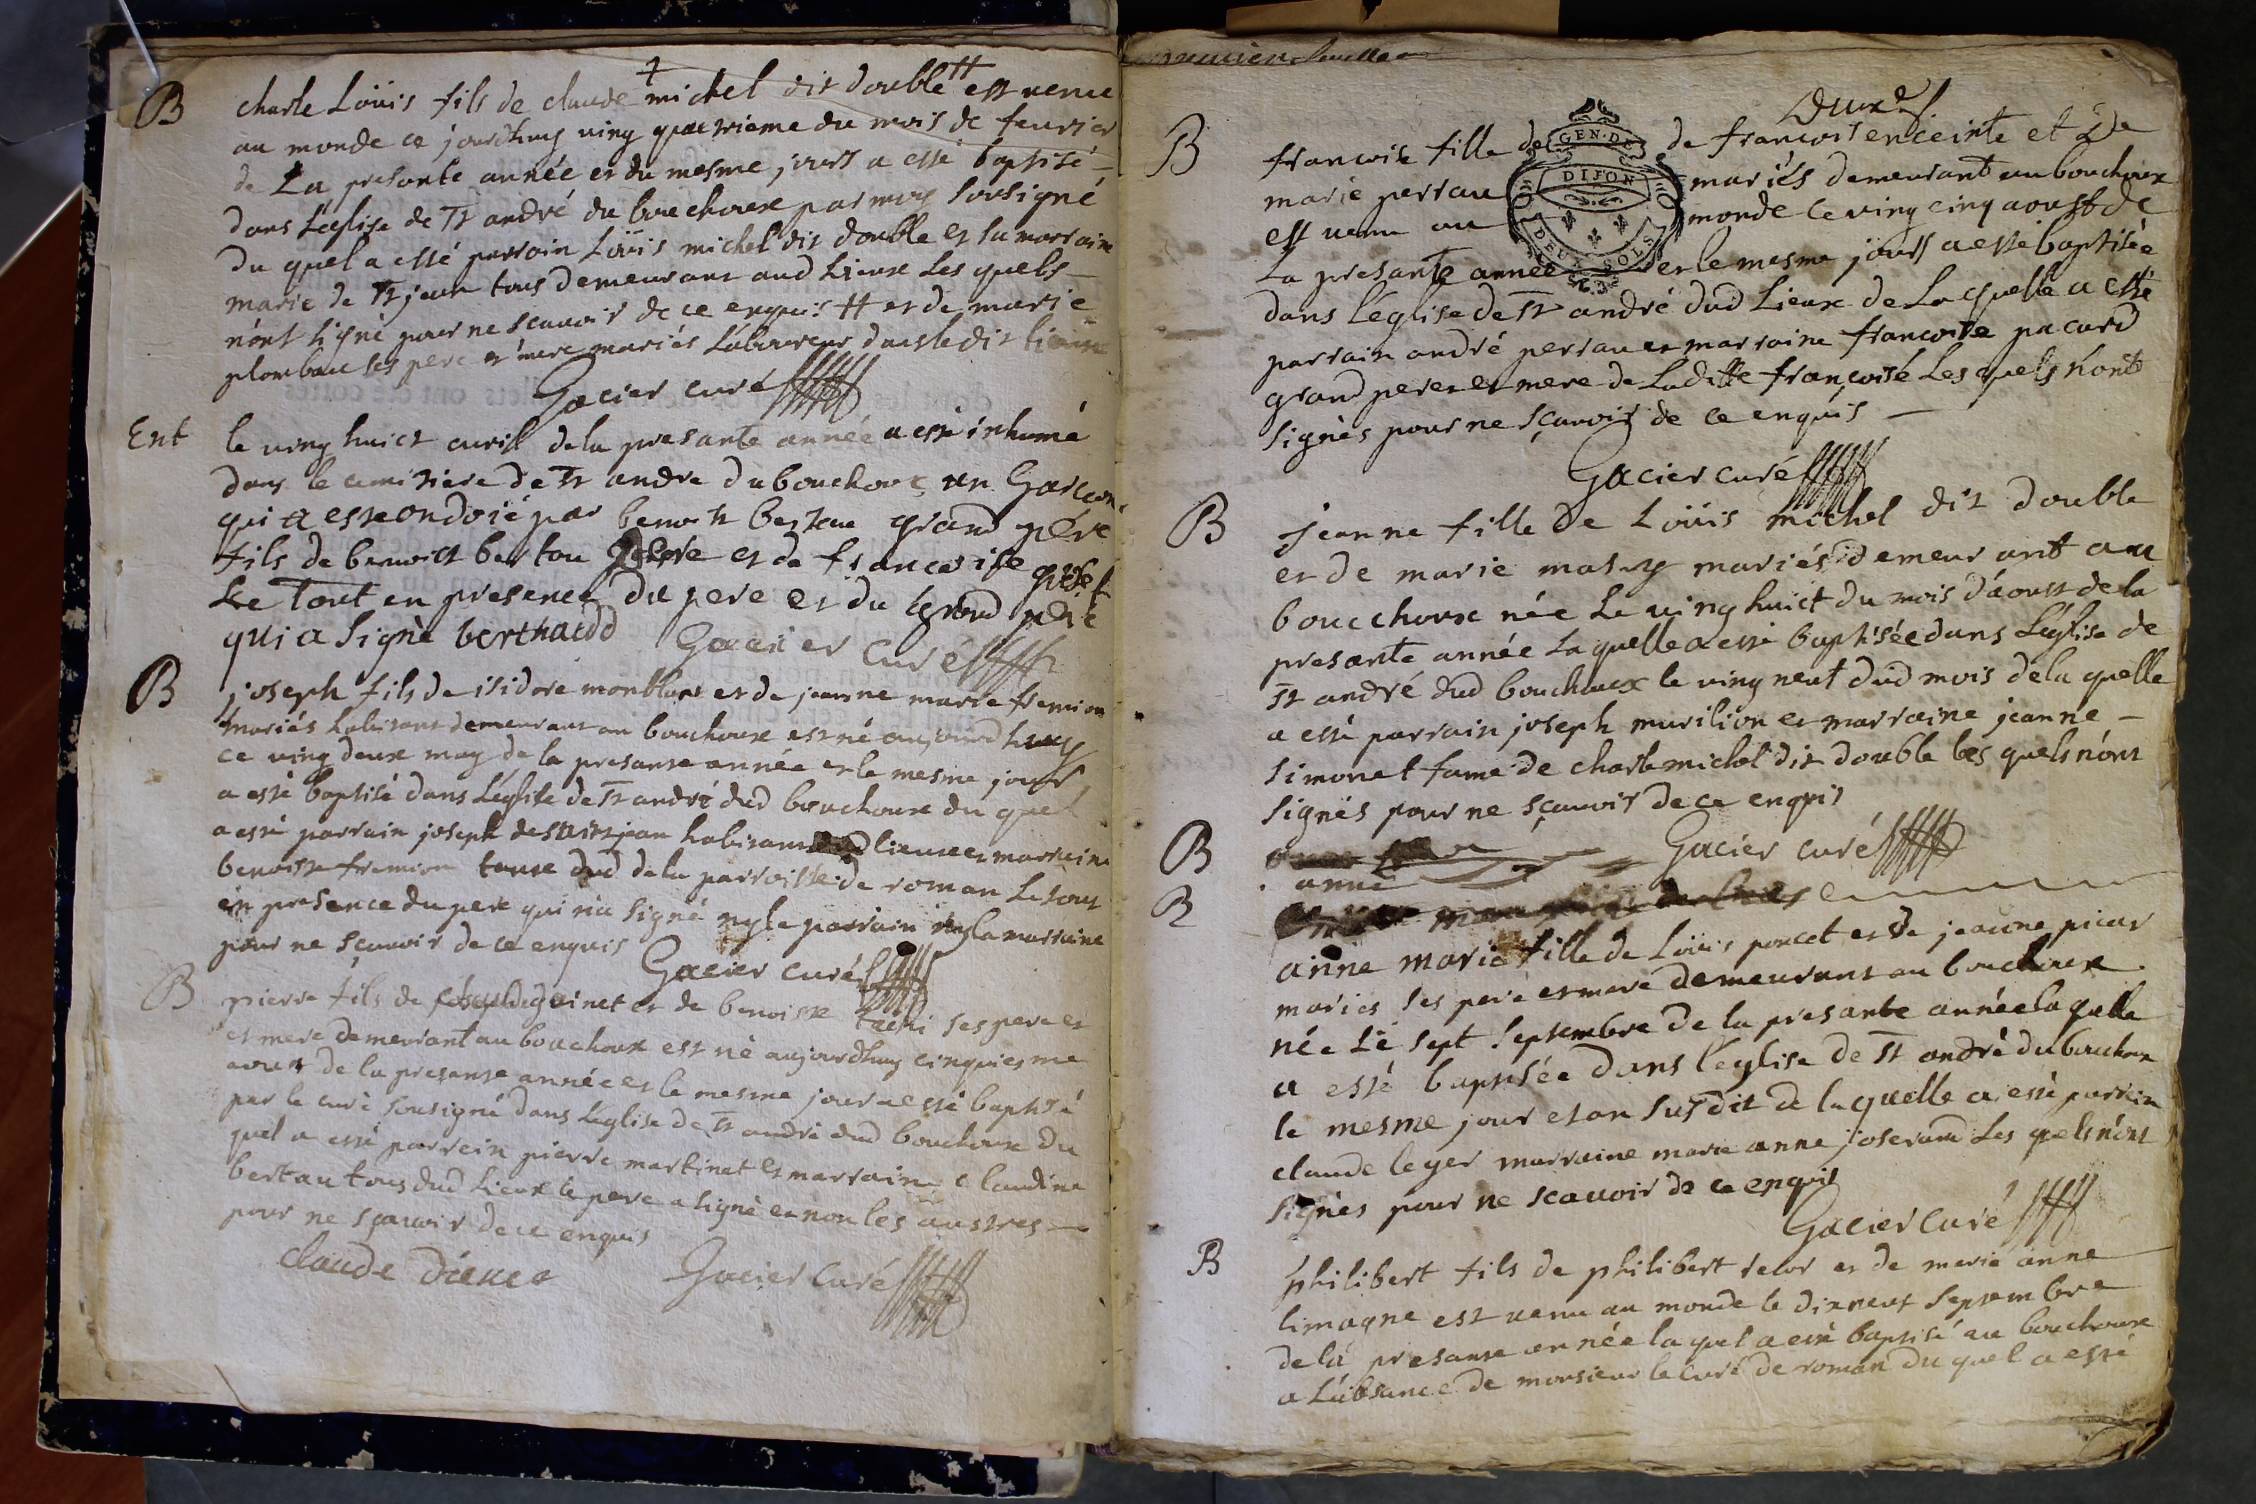 B charle Loüis fils de claude michel dit double # est venu
au monde ce jourdhuy ving quatrieme du mois de feurier
de La presante année et du mesme jours a essé baptisé
dans Léglise de St andré du bouchoux par moy sousigné
du quel a essé parrain Loüis michel dit double et sa marraine
marie de St jean tous demeurant aud Lieux Les quels
n'ont signé pour ne scauoir de ce enquis # et de marie
plombau ses pere et mere mariés Laboureur dans le dit lieux
Gacier curé
Ent le ving huict auril de la presante année a essé inhumé
dans le cemitiere de St andre du bouchoux un Garcon
qui a esse ondoié par benoit bertau grand pére
fils de benoict bertau et de francoise
Le Tout en presence du pere et du grand pere
qui a signé berthaudd Gacier Curé
B joseph fils de isidore monblant et de jeanne marie fremion
mariés habitant demeurant au bouchoux est né aujourdhuy
ce ving deux may de la presante année et le mesme jour
a essé baptisé dans Léglise de St andré dud bouchoux du quel
a essé parrain joseph de saint jean habitant lieux et marraine
benoisse fremion dud de la parroisse de roman Le tout
en presence du pere qui n'a signé ny le parrain ny la marraine
pour ne sçauoir de ce enquis Gacier curé
B pierre fils de guinet et de benoisse ses pere et
et mere demeurant au bouchoux est né aujourdhuy cinquiesme
aoust de la presante année et le mesme jour a essé baptisé
par le curé sousigné dans Léglise de St andré dud bouchoux du
quel a essé parrein pierre martinet et marraine claudine
bertau tous dud Lieux le pere a signé et non les austres
pour ne sçauoir de ce enquis
claude Gacier Curé
premier feuille
Deuxe
GEN. DE
DIJON
DEUX SOLS
B francoise fille de de francois enceinte et de
marie perrau mariés demeurant au bouchoux
est venu au monde ce ving cinq aoust de
La presante année et le mesme jours a essé baptisée
dans Léglise de St andré dud Lieux de La quelle a essé
parrain andré perrau et marraine francoise pacard
grand pere et mere de Laditte françoise Les quels n'ont
signés pour ne sçauoir de ce enquis
Gacier curé
B jeanne fille de Loüis michel dit double
et de marie mariés demeurant au
boucchoux née Le ving huict du mois d'aoust de la
presante année La quelle a essé baptisée dans Léglise de
St andré dud bouchoux le ving neuf dud mois de la quelle
a essé parrain joseph murilion et marraine jeanne
simonet fame de charle michel dit double les quels n'ont
signés pour ne sçauoir de ce enquis
Gacier curé
B
anne
B
anne marie fille de Loüis poncet et de jeanne picar
mariés ses pere et mere demeurant au bouchoux
née Le sept septembre de la presante année la quelle
a essé baptisée dans l'eglise de St andré du bouchoux
le mesme jour et an susdit de la quelle a essé parrain
claude leger marraine marie anne joserand Les quels n'ont
signés pour ne scauoir de ce enquis
Gacier curé
B philibert fils de philibert et de marie anne
limagne est uenu au monde le dix neuf septembre
de la presante année la quel a essé baptisé au bouchoux
a L'absance de monsieur le Curé de roman du quel a essé